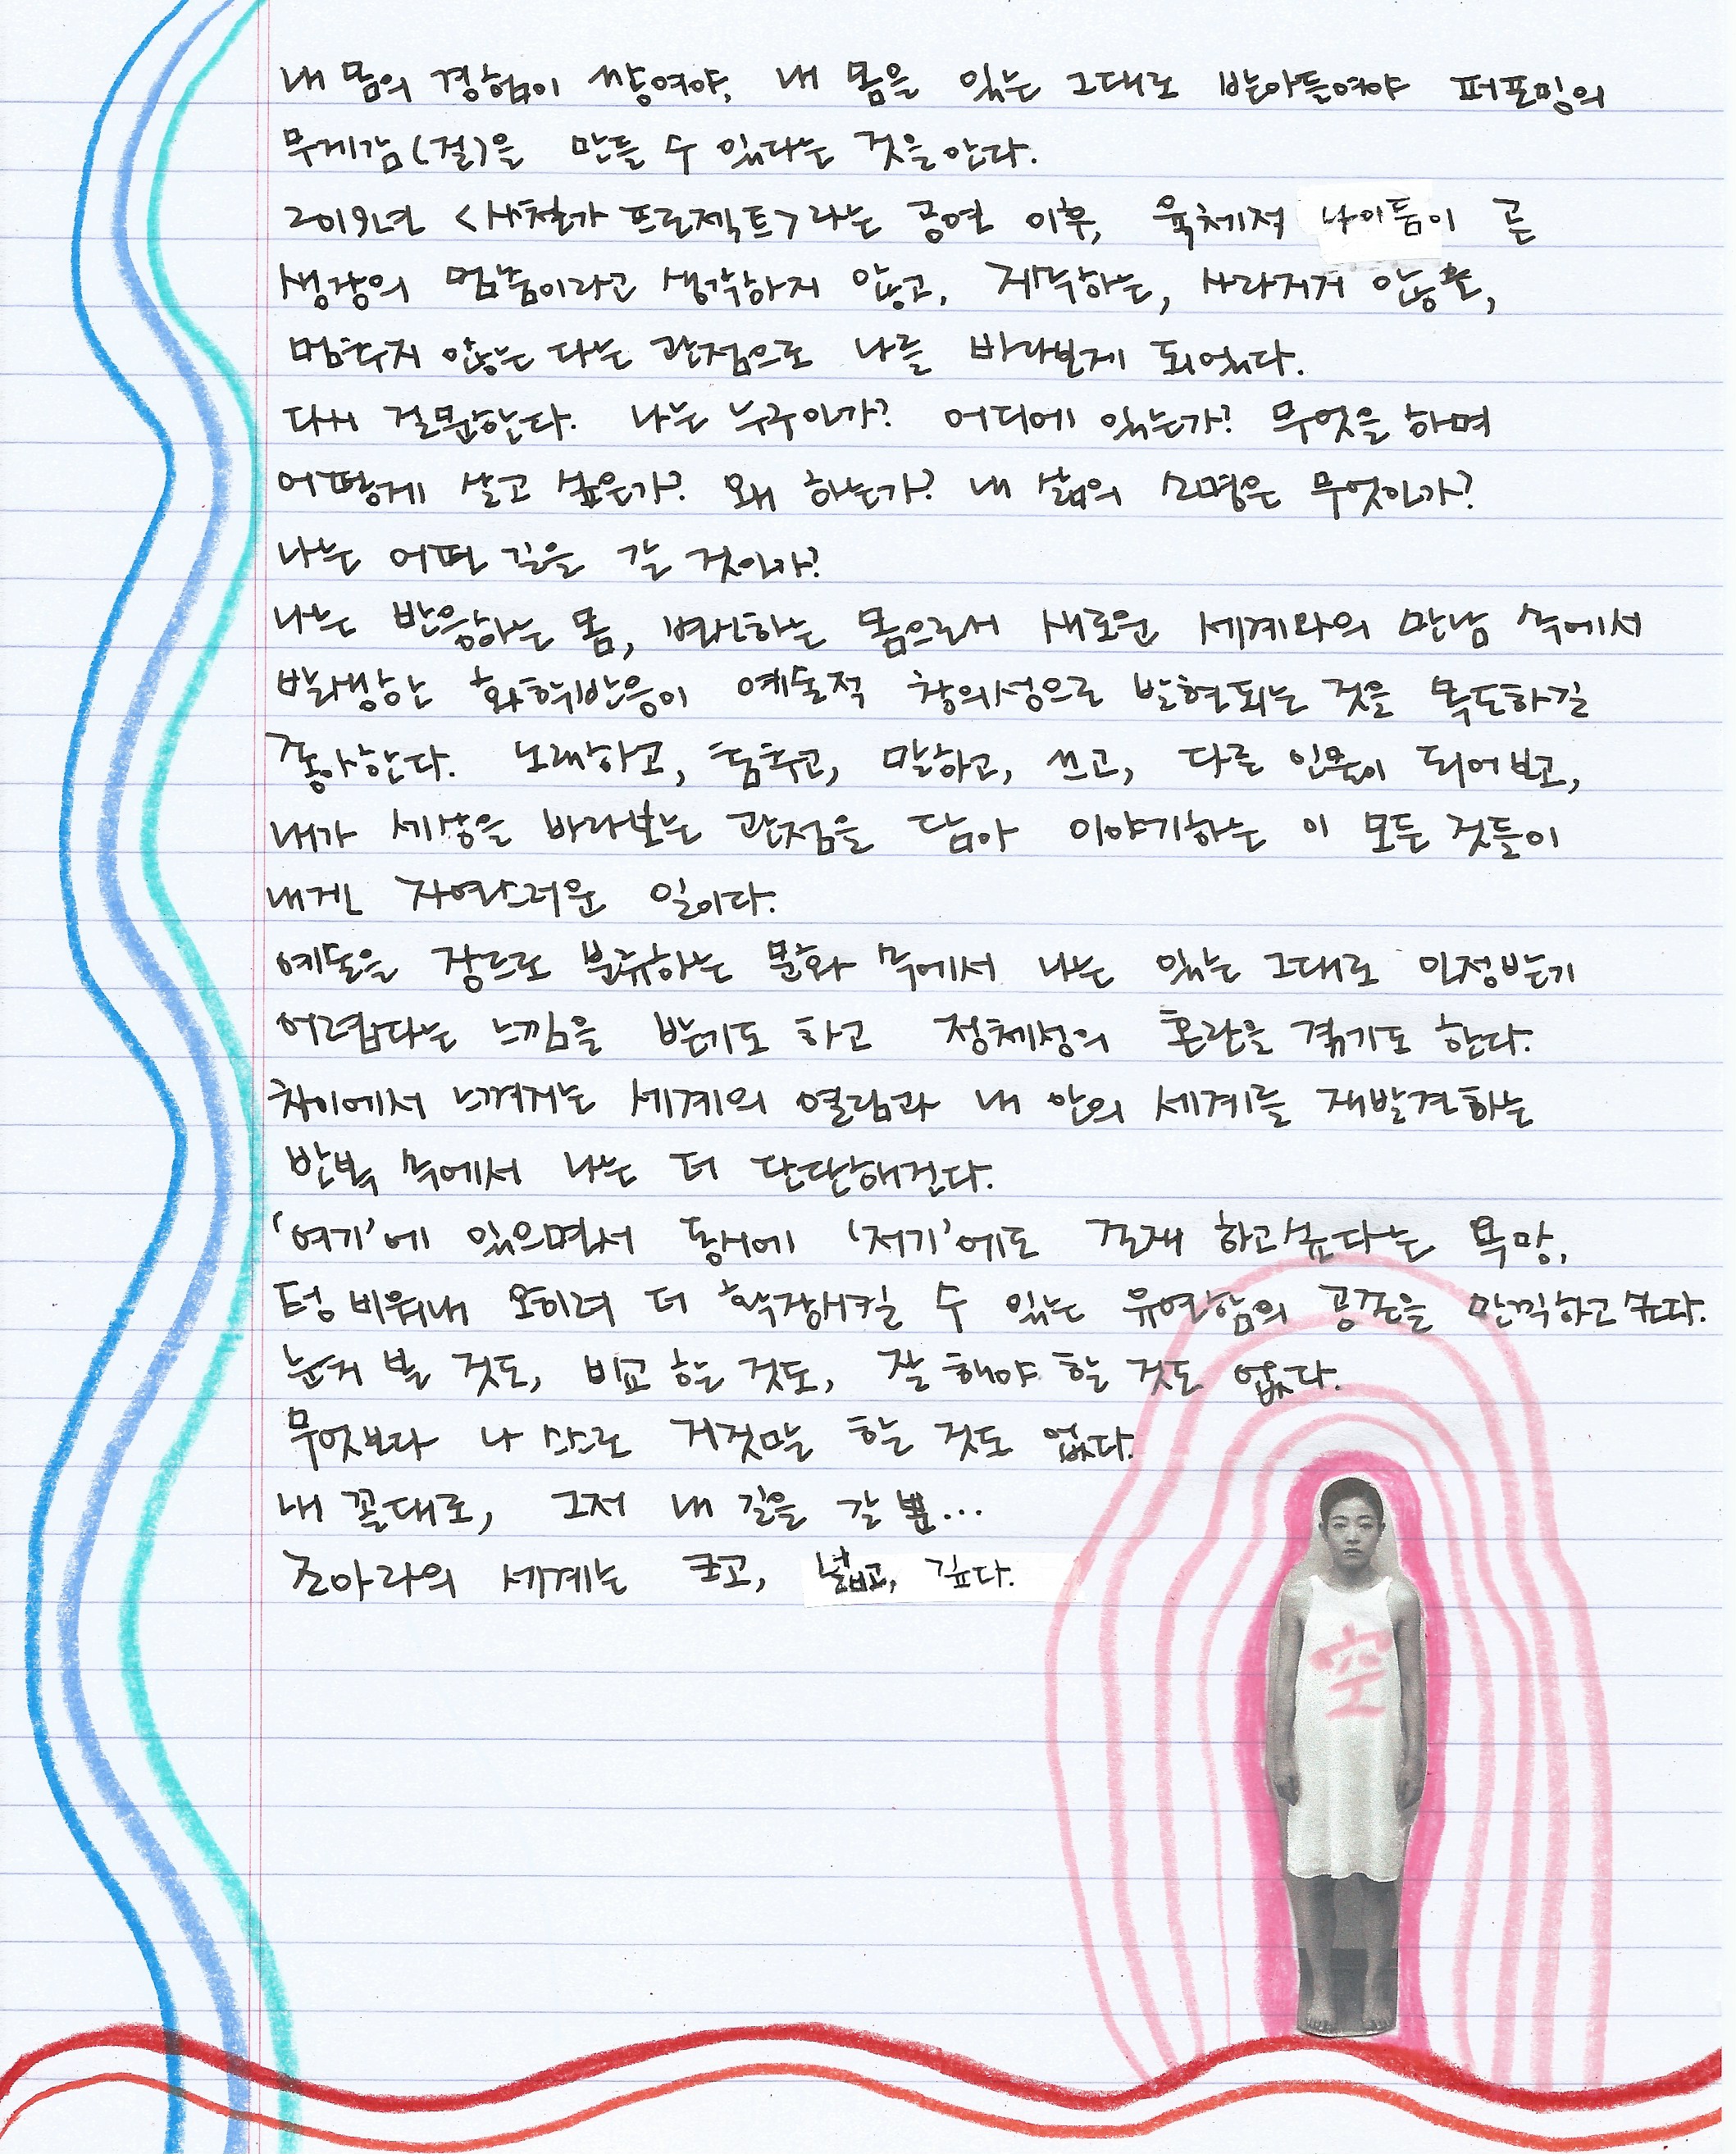 내 몸의 경험이 쌓여야, 내 몸을 있는 그대로 받아들여야 퍼포밍의
무게감(결)을 만들 수 있다는 것을 안다.
2019년 <사철가 프로젝트>라는 공연 이후, 육체적 나이듦이 곧
생장의 멈춤이라고 생각하지 않고, 계속하는, 사라지지 않을,
멈추지 않는 다는 관점으로 나를 바라보게 되었다.
다시 질문한다. 나는 누구인가? 어디에 있는가? 무엇을 하며
어떻게 살고 싶은가? 왜 하는가? 내 삶의 소명은 무엇인가?
나는 어떤 길을 갈 것인가?
나는 반응하는 몸, 변신하는 몸으로서 새로운 세계와의 만남 속에서
발생한 화학반응이 예술적 창의성으로 발현되는 것을 목도하길
좋아한다. 노래하고, 춤추고, 말하고, 쓰고, 다른 인물이 되어보고,
내가 세상을 바라보는 관점을 담아 이야기하는 이 모든 것들이
내겐 자연스러운 일이다.
예술을 장르로 분류하는 문화 속에서 나는 있는 그대로 인정받기
어렵다는 느낌을 받기도 하고 정체성의 혼란을 겪기도 한다.
차이에서 느껴지는 세계의 열림과 내 안의 세계를 재발견하는
반복 속에서 나는 더 단단해진다.
'여기'에 있으면서 동시에 '저기'에도 존재 하고싶다는 욕망,
텅 비워내 오히려 더 확장시킬 수 있는 유연함의 공존을 만끽하고 싶다.
눈치 볼 것도, 비교 할 것도, 잘 해야 할 것도 없다.
무엇보다 나 스스로 거짓말 할 것도 없다.
내 꼴대로, 그저 내 길을 갈 뿐...
조아라의 세계는 크고, 넓고, 깊다.
空